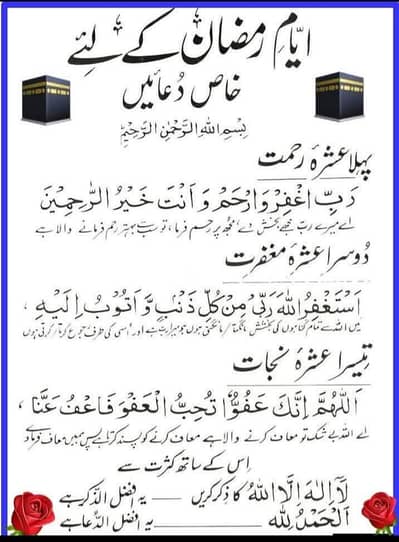 ایّامِ رمضان کے لئے
خاص دُعائیں
بِسْمِ اللهِ الرَّحْمٰنِ الرَّحِيْمِ
پہلا عشرہ رحمت
رَبِّ اغْفِرْ وَارْحَمْ وَاَنْتَ خَيْرُ الرّٰحِمِيْنَ
اے میرے رب مجھے بخش دے، مجھ پر رحم فرما، تو سب سے بہتر رحم فرمانے والا ہے
دُوسرا عشرۂ مغفرت
اَسْتَغْفِرُ اللهَ رَبِّیْ مِنْ كُلِّ ذَنْبٍ وَّاَتُوْبُ اِلَيْهِ،
میں اللہ سے تمام گناہوں کی بخشش مانگتا / مانگتی ہوں جو میرا رب ہے اور اسی کی طرف رجوع کرتا / کرتی ہوں
تیسرا عشرۂ نجات
اَللّٰهُمَّ اِنَّكَ عَفُوٌّ تُحِبُّ الْعَفْوَ فَاعْفُ عَنَّا،
اے اللہ بے شک تو معاف کرنے والا ہے معاف کرنے کو پسند کرتا ہے پس ہمیں معاف فرما دے
اِس کے ساتھ کثرت سے
لَآ اِلٰهَ اِلَّا اللهُ کا ذکر کریں —— یہ افضل الذّکر ہے
اَلْحَمْدُ لِلّٰهِ —— یہ افضل الدّعا ہے